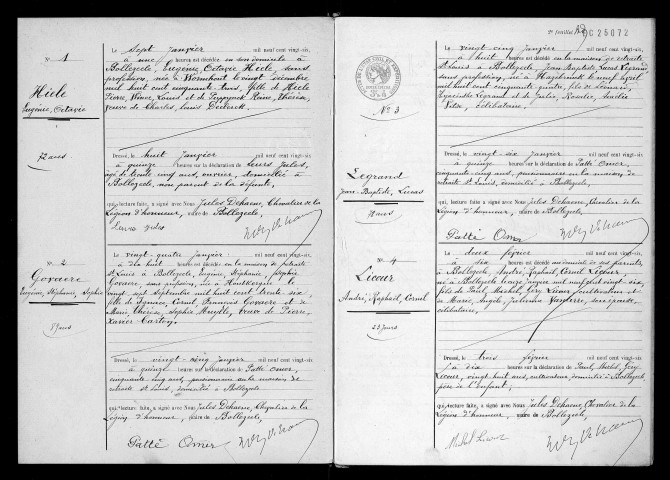 Nº 1
Hièle
Eugénie, Octavie
72 ans
Le sept janvier mil neuf cent vingt-six,
à une heures est décédée en son domicile à
Bollezeele, Eugénie Octavie Hièle, sans
profession, née à Wormhout le vingt décembre
mil huit cent cinquante trois, fille de Hièle
Pierre, Louis et de Reine, Thérèse,
veuve de Charles, Louis
Dressé, le huit janvier mil neuf cent vingt-six
à quinze heures sur la déclaration de Jules,
âgé de trente cinq ans, ouvrier, domicilié à
Bollezeele, non parent de la défunte,
qui, lecture faite, a signé avec Nous Jules Dehaene, Chevalier de la
Légion d'honneur, maire de Bollezeele.
Nº 2
Govaere
Eugénie, Stéphanie, Sophie
ans
Le vingt-quatre janvier mil neuf cent vingt-six
à dix huit heures est décédée en la maison de retraite
St Louis à Bollezeele, Eugénie, Stéphanie, Sophie
Govaere, sans profession, née à Houtkerque le
vingt sept septembre mil huit cent trente-six,
fille de Ignace, Cornil François Govaere et de
Marie Thérèse, Sophie, veuve de Pierre,
Xavier
Dressé, le vingt-cinq janvier mil neuf cent vingt-six
à quinze heures sur la déclaration de Patté Omer,
cinquante cinq ans, pensionnaire en la maison de
retraite St Louis, domicilié à Bollezeele
qui, lecture faite, a signé avec Nous Jules Dehaene, Chevalier de la
Légion d'honneur, maire de Bollezeele.
Patté Omer
2e feuillet
DC25072
Nº 3
Legrand
Jean-Baptiste, Lucas
ans
Le vingt cinq janvier mil neuf cent vingt-six
à huit heures est décédé en la maison de retraite
St Louis à Bollezeele, Jean Baptiste Lucas Legrand
sans profession, né à Hazebrouck le neuf avril
mil huit cent cinquante quatre, fils de
Legrand et de Julie, Rosalie, Amélie
célibataire.
Dressé, le vingt-six janvier mil neuf cent vingt-six
à quinze heures sur la déclaration de Patté Omer,
cinquante cinq ans, pensionnaire en la maison de
retraite St Louis, domicilié à Bollezeele,
qui, lecture faite, a signé avec Nous Jules Dehaene, Chevalier de la
Légion d'honneur, maire de Bollezeele
Patté Omer
Nº 4
Licour
André, Raphaël, Cornil
23 jours
Le deux février mil neuf cent vingt-six
à six heures est décédé au domicile de ses parents
à Bollezeele, André, Raphaël, Cornil Licour,
né à Bollezeele le onze janvier mil neuf cent vingt six,
fils de Paul, Michel, Géry Licour cultivateur et
de Marie, Angèle, Julienne, son épouse,
célibataire.
Dressé, le trois février mil neuf cent vingt-six
à dix heures sur la déclaration de Paul, Michel, Géry
Licour, vingt huit ans, cultivateur, domicilié à Bollezeele
père de l'enfant,
qui, lecture faite, a signé avec Nous Jules Dehaene Chevalier de la
Légion d'honneur, maire de Bollezeele.
Michel Licour